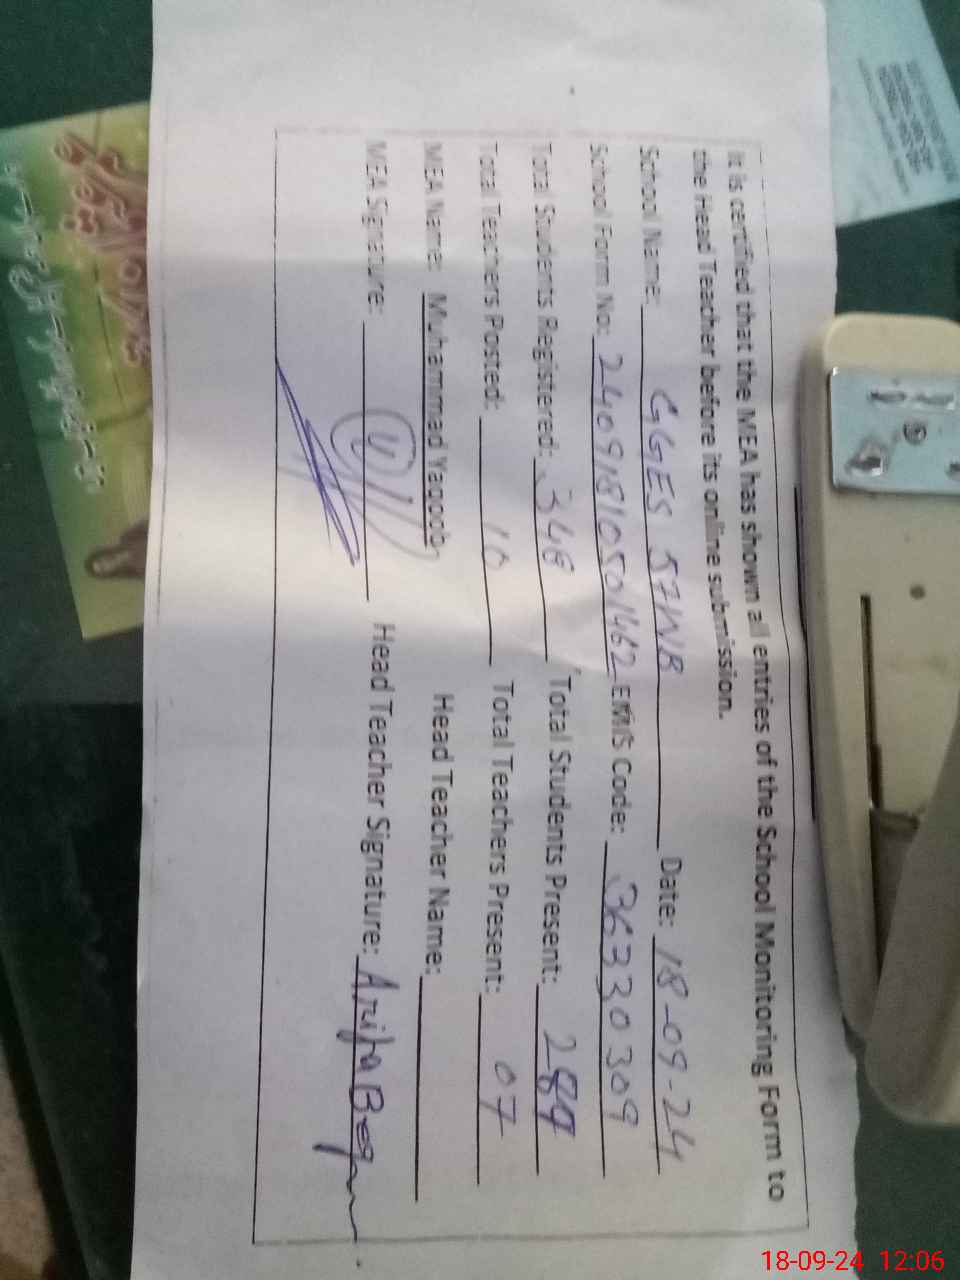 It is certified that the MEA has shown all entries of the School Monitoring Form to
the Head Teacher before its online submission.
School Name: GGES 57WB Date: 18-09-24
School Form No: 24091810501462 EMIS Code: 36330309
Total Students Registered: 346 Total Students Present: 289
Total Teachers Posted: 10 Total Teachers Present: 07
MEA Name: Muhammad Yaqoob Head Teacher Name:
MEA Signature: Head Teacher Signature: Arifa Begum
18-09-24 12:06